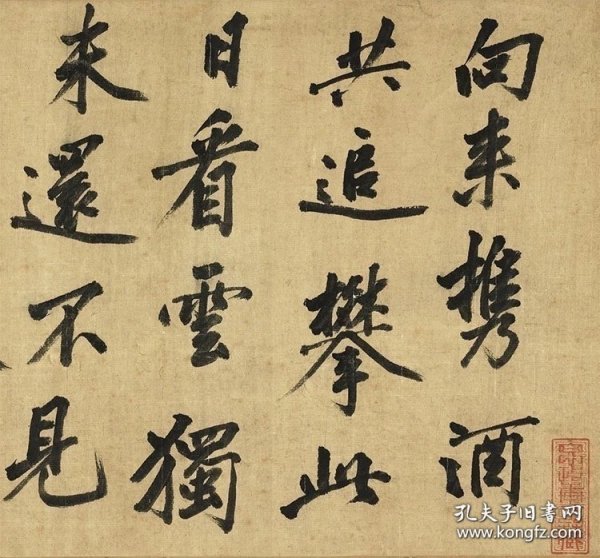 向来携酒
共追攀此
日看雲獨
未還不見
孔夫子旧书网
www.kongfz.com